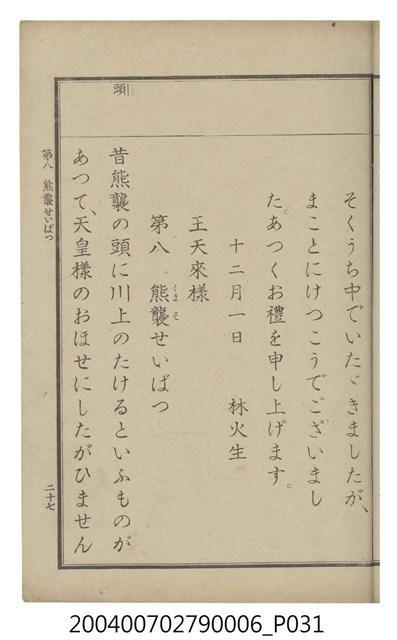 そくうち中でいたゞきましたが、
まことにけつこうでございまし
た。あつくお禮を申し上げます。
十二月一日　林火生
王天來樣
第八　熊襲せいばつ
くまそ
昔熊襲の頭に川上のたけるといふものが
あつて、天皇樣のおほせにしたがひません
頭
第八　熊襲せいばつ
二十七
200400702790006_P031